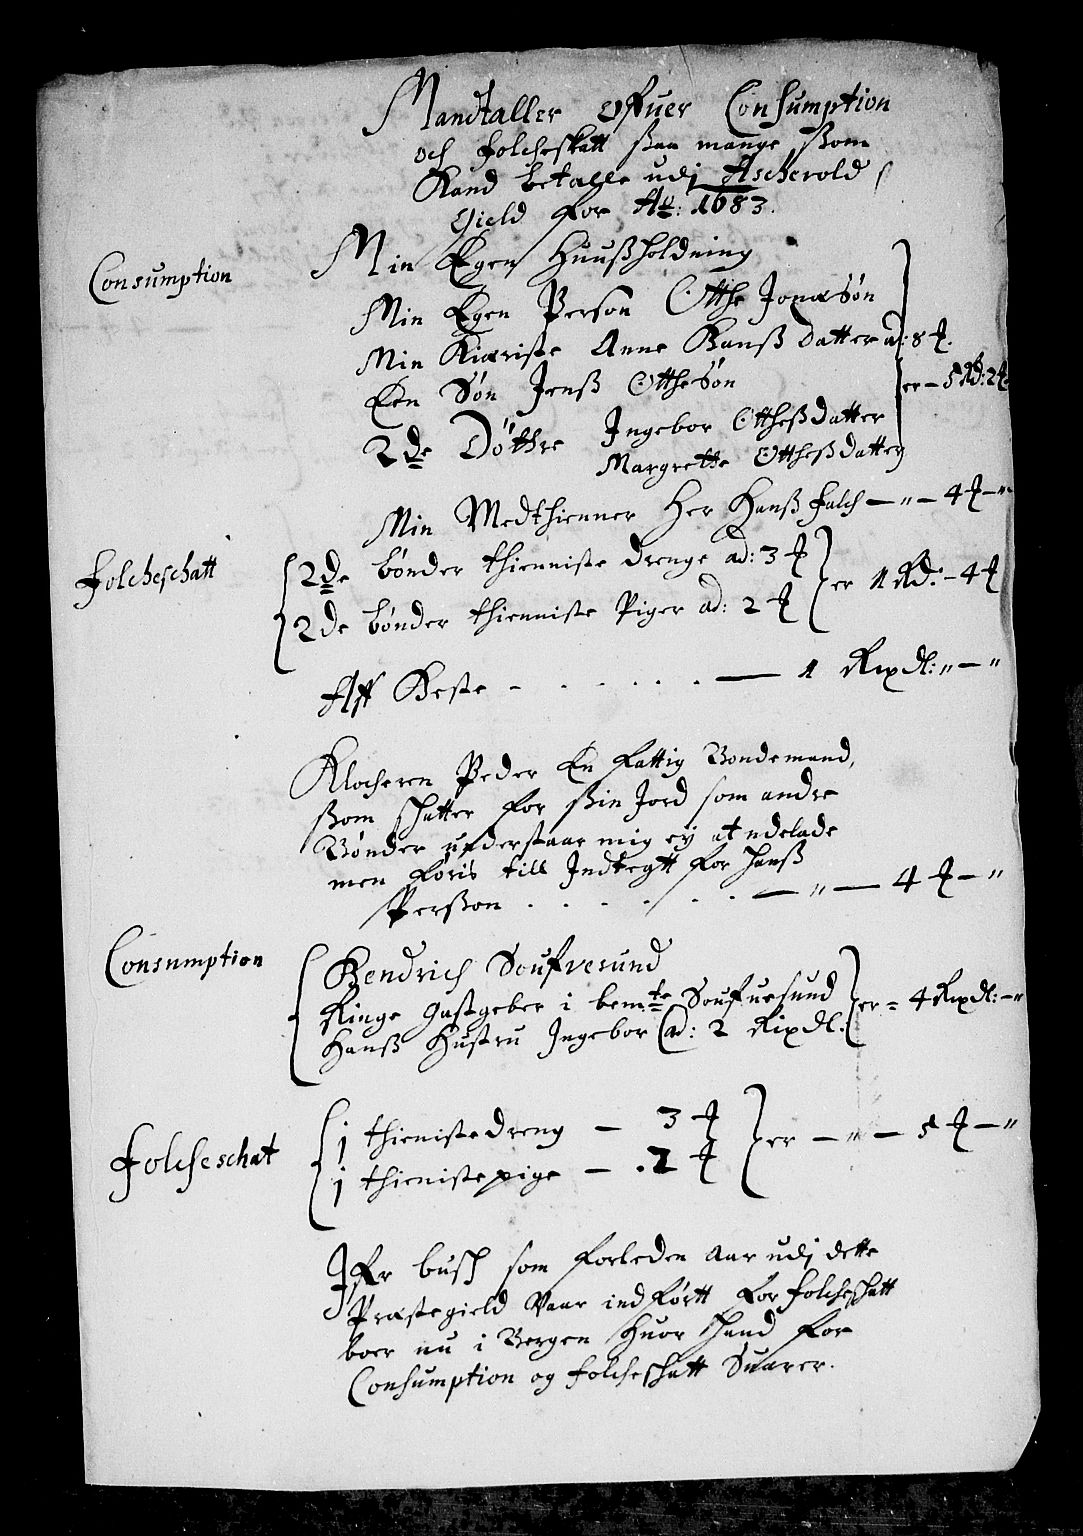 Mandtaller offuer Consumption
och folcheskatt saa mange ßom
Kand betalle udj Ascherold ſ
Gield for Ao: 1683.
Consumption
Min Egen Huußholdning
Min Egen Person Otthe Jonæsøn
Min Kiæriste Anne Hanß datter ad: 8 ₰.
Een Søn Jenß Otthesøn
er — 5 Rd: 2 ₰
2de Døttre Ingebor Ottheßdatter
Margrette Ottheßdatter
Min Medthienner Her Hanß falch — " — 4 ₰ — "
Folcheschatt
2de bønder thienniste drenge ad: 3 ₰
2de bønder thienniste Piger ad: 2 ₰
er 1 Rd: — 4 ₰
Aff Heste - . . . . . — 1 Rixdl: " — "
Klocheren Peder En fattig Bondemand,
ßom schatter for ßin Jord som andre
Bønder understaar mig ey at udelade
men føris till Indtegtt for hanß
Perßon . . . . . . — " — 4 ₰ — "
Consumption
Hendrich Soufuesund
Ringe Gastgeber i bemte Soufuesund
Hanß Hustru Ingebor ad: 2 Rixdl.
er = 4 Rixdl: — "
Folcheschat
1 thienistedreng — 3 ₰
1 thienistepige — . 2 ₰
er — " — 5 ₰ — "
Jfr busch som forleden aar udj dette
Præstegield Vaar indførtt for folcheschatt
boer nu i Bergen huor hand for
Consumption og folcheschatt Suarer.